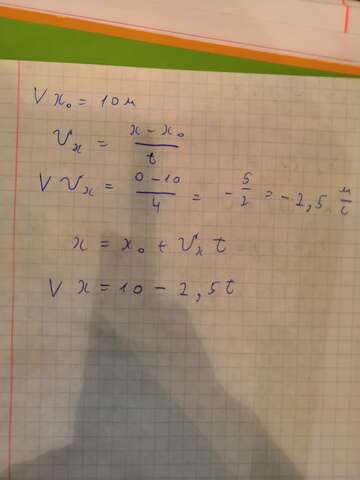 V x₀ = 10 м
υₓ = (x − x₀)/t
V υₓ = (0 − 10)/4 = − 5/2 = − 2,5 м/с
x = x₀ + υₓ t
V x = 10 − 2,5 t